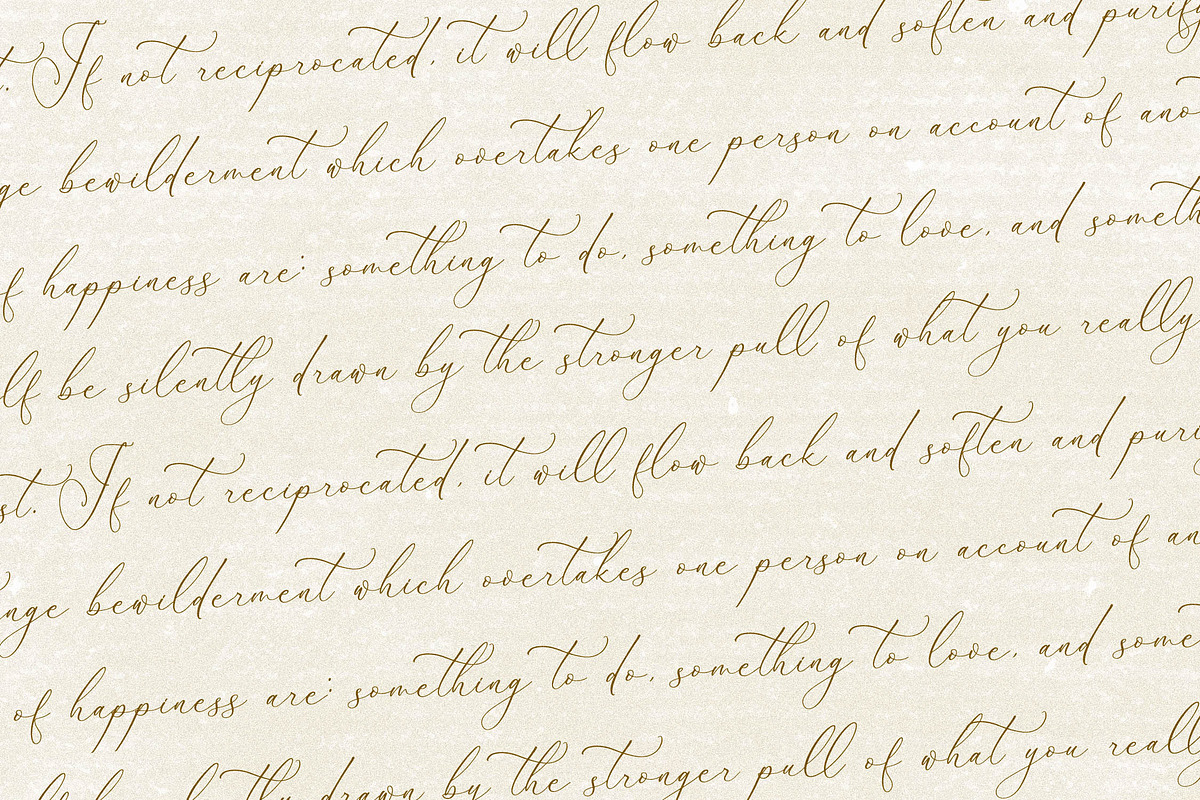 t. If not reciprocated, it will flow back and soften and purify
ge bewilderment which overtakes one person on account of ano
of happiness are: something to do, something to love, and someth
lf be silently drawn by the stronger pull of what you really
st. If not reciprocated, it will flow back and soften and puri
nge bewilderment which overtakes one person on account of an
of happiness are: something to do, something to love, and some
drawn by the stronger pull of what you reall